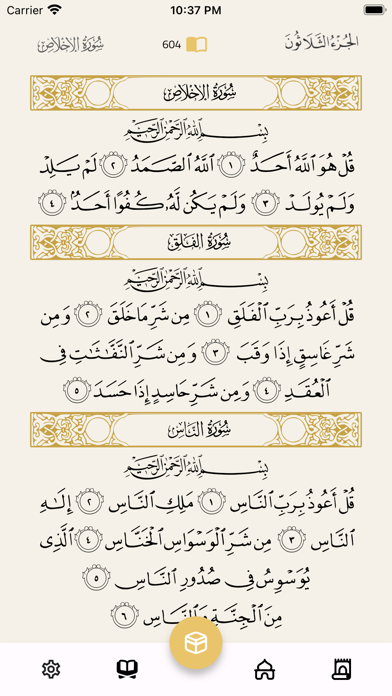 Carrier 10:37 PM
الجُزْءُ الثَّلَاثُونَ 604 سُورَةُ الإِخْلَاصِ
سُورَةُ الإِخْلَاصِ
بِسْمِ ٱللَّهِ ٱلرَّحْمَٰنِ ٱلرَّحِيمِ
قُلْ هُوَ ٱللَّهُ أَحَدٌ ١ ٱللَّهُ ٱلصَّمَدُ ٢ لَمْ يَلِدْ
وَلَمْ يُولَدْ ٣ وَلَمْ يَكُن لَّهُۥ كُفُوًا أَحَدٌۢ ٤
سُورَةُ الفَلَقِ
بِسْمِ ٱللَّهِ ٱلرَّحْمَٰنِ ٱلرَّحِيمِ
قُلْ أَعُوذُ بِرَبِّ ٱلْفَلَقِ ١ مِن شَرِّ مَا خَلَقَ ٢ وَمِن
شَرِّ غَاسِقٍ إِذَا وَقَبَ ٣ وَمِن شَرِّ ٱلنَّفَّٰثَٰتِ فِى
ٱلْعُقَدِ ٤ وَمِن شَرِّ حَاسِدٍ إِذَا حَسَدَ ٥
سُورَةُ النَّاسِ
بِسْمِ ٱللَّهِ ٱلرَّحْمَٰنِ ٱلرَّحِيمِ
قُلْ أَعُوذُ بِرَبِّ ٱلنَّاسِ ١ مَلِكِ ٱلنَّاسِ ٢ إِلَٰهِ
ٱلنَّاسِ ٣ مِن شَرِّ ٱلْوَسْوَاسِ ٱلْخَنَّاسِ ٤ ٱلَّذِى
يُوَسْوِسُ فِى صُدُورِ ٱلنَّاسِ ٥
مِنَ ٱلْجِنَّةِ وَٱلنَّاسِ ٦